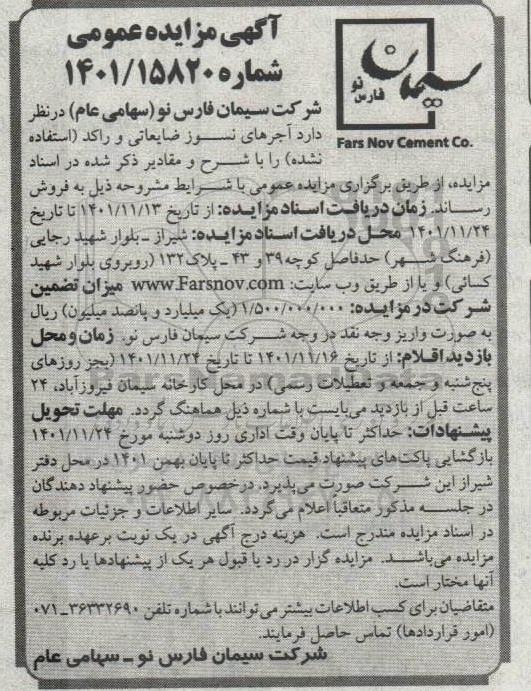 آگهی مزایده عمومی
شماره ۱۴۰۱/۱۵۸۲۰
سیمان
نو
فارس
Fars Nov Cement Co.
شرکت سیمان فارس نو (سهامی عام) درنظر
دارد آجرهای نسوز ضایعاتی و راکد (استفاده
نشده) را با شرح و مقادیر ذکر شده در اسناد
مزایده، از طریق برگزاری مزایده عمومی با شرایط مشروحه ذیل به فروش
رساند. زمان دریافت اسناد مزایده: از تاریخ ۱۴۰۱/۱۱/۱۳ تا تاریخ
۱۴۰۱/۱۱/۲۴ محل دریافت اسناد مزایده: شیراز ـ بلوار شهید رجایی
(فرهنگ شهر) حدفاصل کوچه ۳۹ و ۴۳ ـ پلاک ۱۳۲ (روبروی بلوار شهید
کسائی) و یا از طریق وب سایت: www.Farsnov.com میزان تضمین
شرکت در مزایده: ۱/۵۰۰/۰۰۰/۰۰۰ (یک میلیارد و پانصد میلیون) ریال
به صورت واریز وجه نقد در وجه شرکت سیمان فارس نو. زمان و محل
بازدید اقلام: از تاریخ ۱۴۰۱/۱۱/۱۶ تا تاریخ ۱۴۰۱/۱۱/۲۴ (بجز روزهای
پنج‌شنبه و جمعه و تعطیلات رسمی) در محل کارخانه سیمان فیروزآباد، ۲۴
ساعت قبل از بازدید می‌بایست با شماره ذیل هماهنگ گردد. مهلت تحویل
پیشنهادات: حداکثر تا پایان وقت اداری روز دوشنبه مورخ ۱۴۰۱/۱۱/۲۴
بازگشایی پاکت‌های پیشنهاد قیمت حداکثر تا پایان بهمن ۱۴۰۱ در محل دفتر
شیراز این شرکت صورت می‌پذیرد. درخصوص حضور پیشنهاد دهندگان
در جلسه مذکور متعاقباً اعلام می‌گردد. سایر اطلاعات و جزئیات مربوطه
در اسناد مزایده مندرج است. هزینه درج آگهی در یک نوبت برعهده برنده
مزایده می‌باشد. مزایده گزار در رد یا قبول هر یک از پیشنهادها یا رد کلیه
آنها مختار است.
متقاضیان برای کسب اطلاعات بیشتر می‌توانند با شماره تلفن ۳۶۳۳۲۶۹۰ـ۰۷۱
(امور قراردادها) تماس حاصل فرمایند.
شرکت سیمان فارس نو ـ سهامی عام